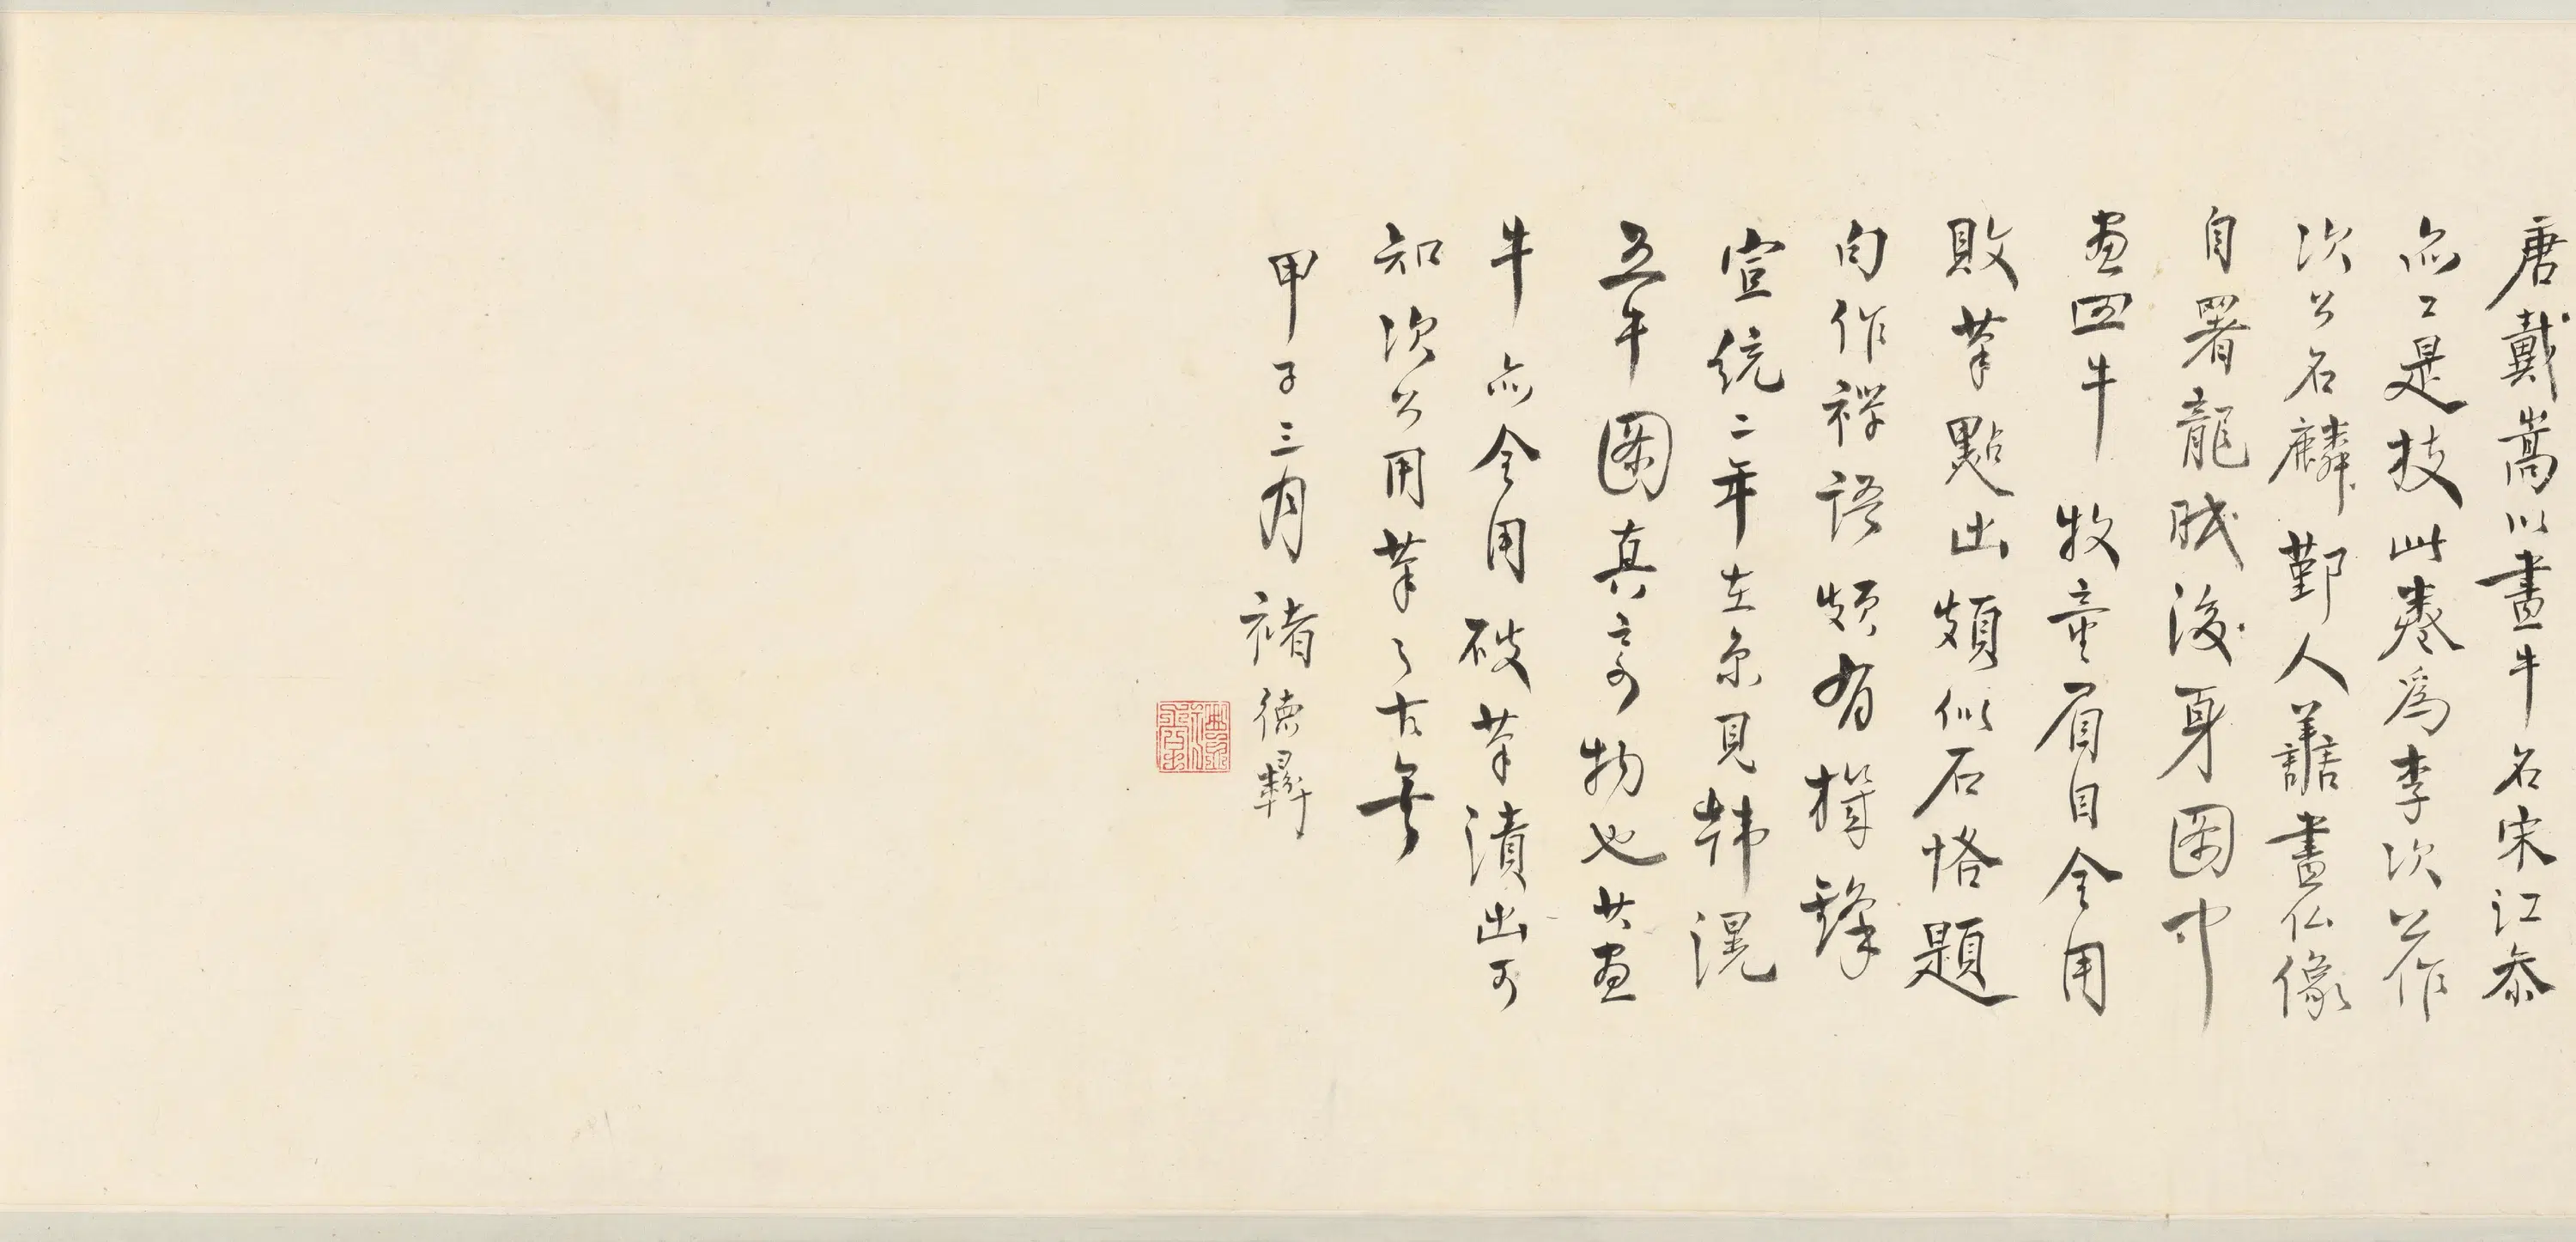 唐戴嵩以畫牛名宋江參
亦工是技此卷為李次公作
次公名麟鄞人善畫仏像
自署龍眠後身圖中
畫四牛牧童眉目全用
敗筆點出頗似石恪題
句作禪語頗有機鋒
宣統二年在京見韓滉
五牛圖真奇物也其畫
牛亦全用破筆漬出可
知次公用筆之古矣
甲子三月褚德彝